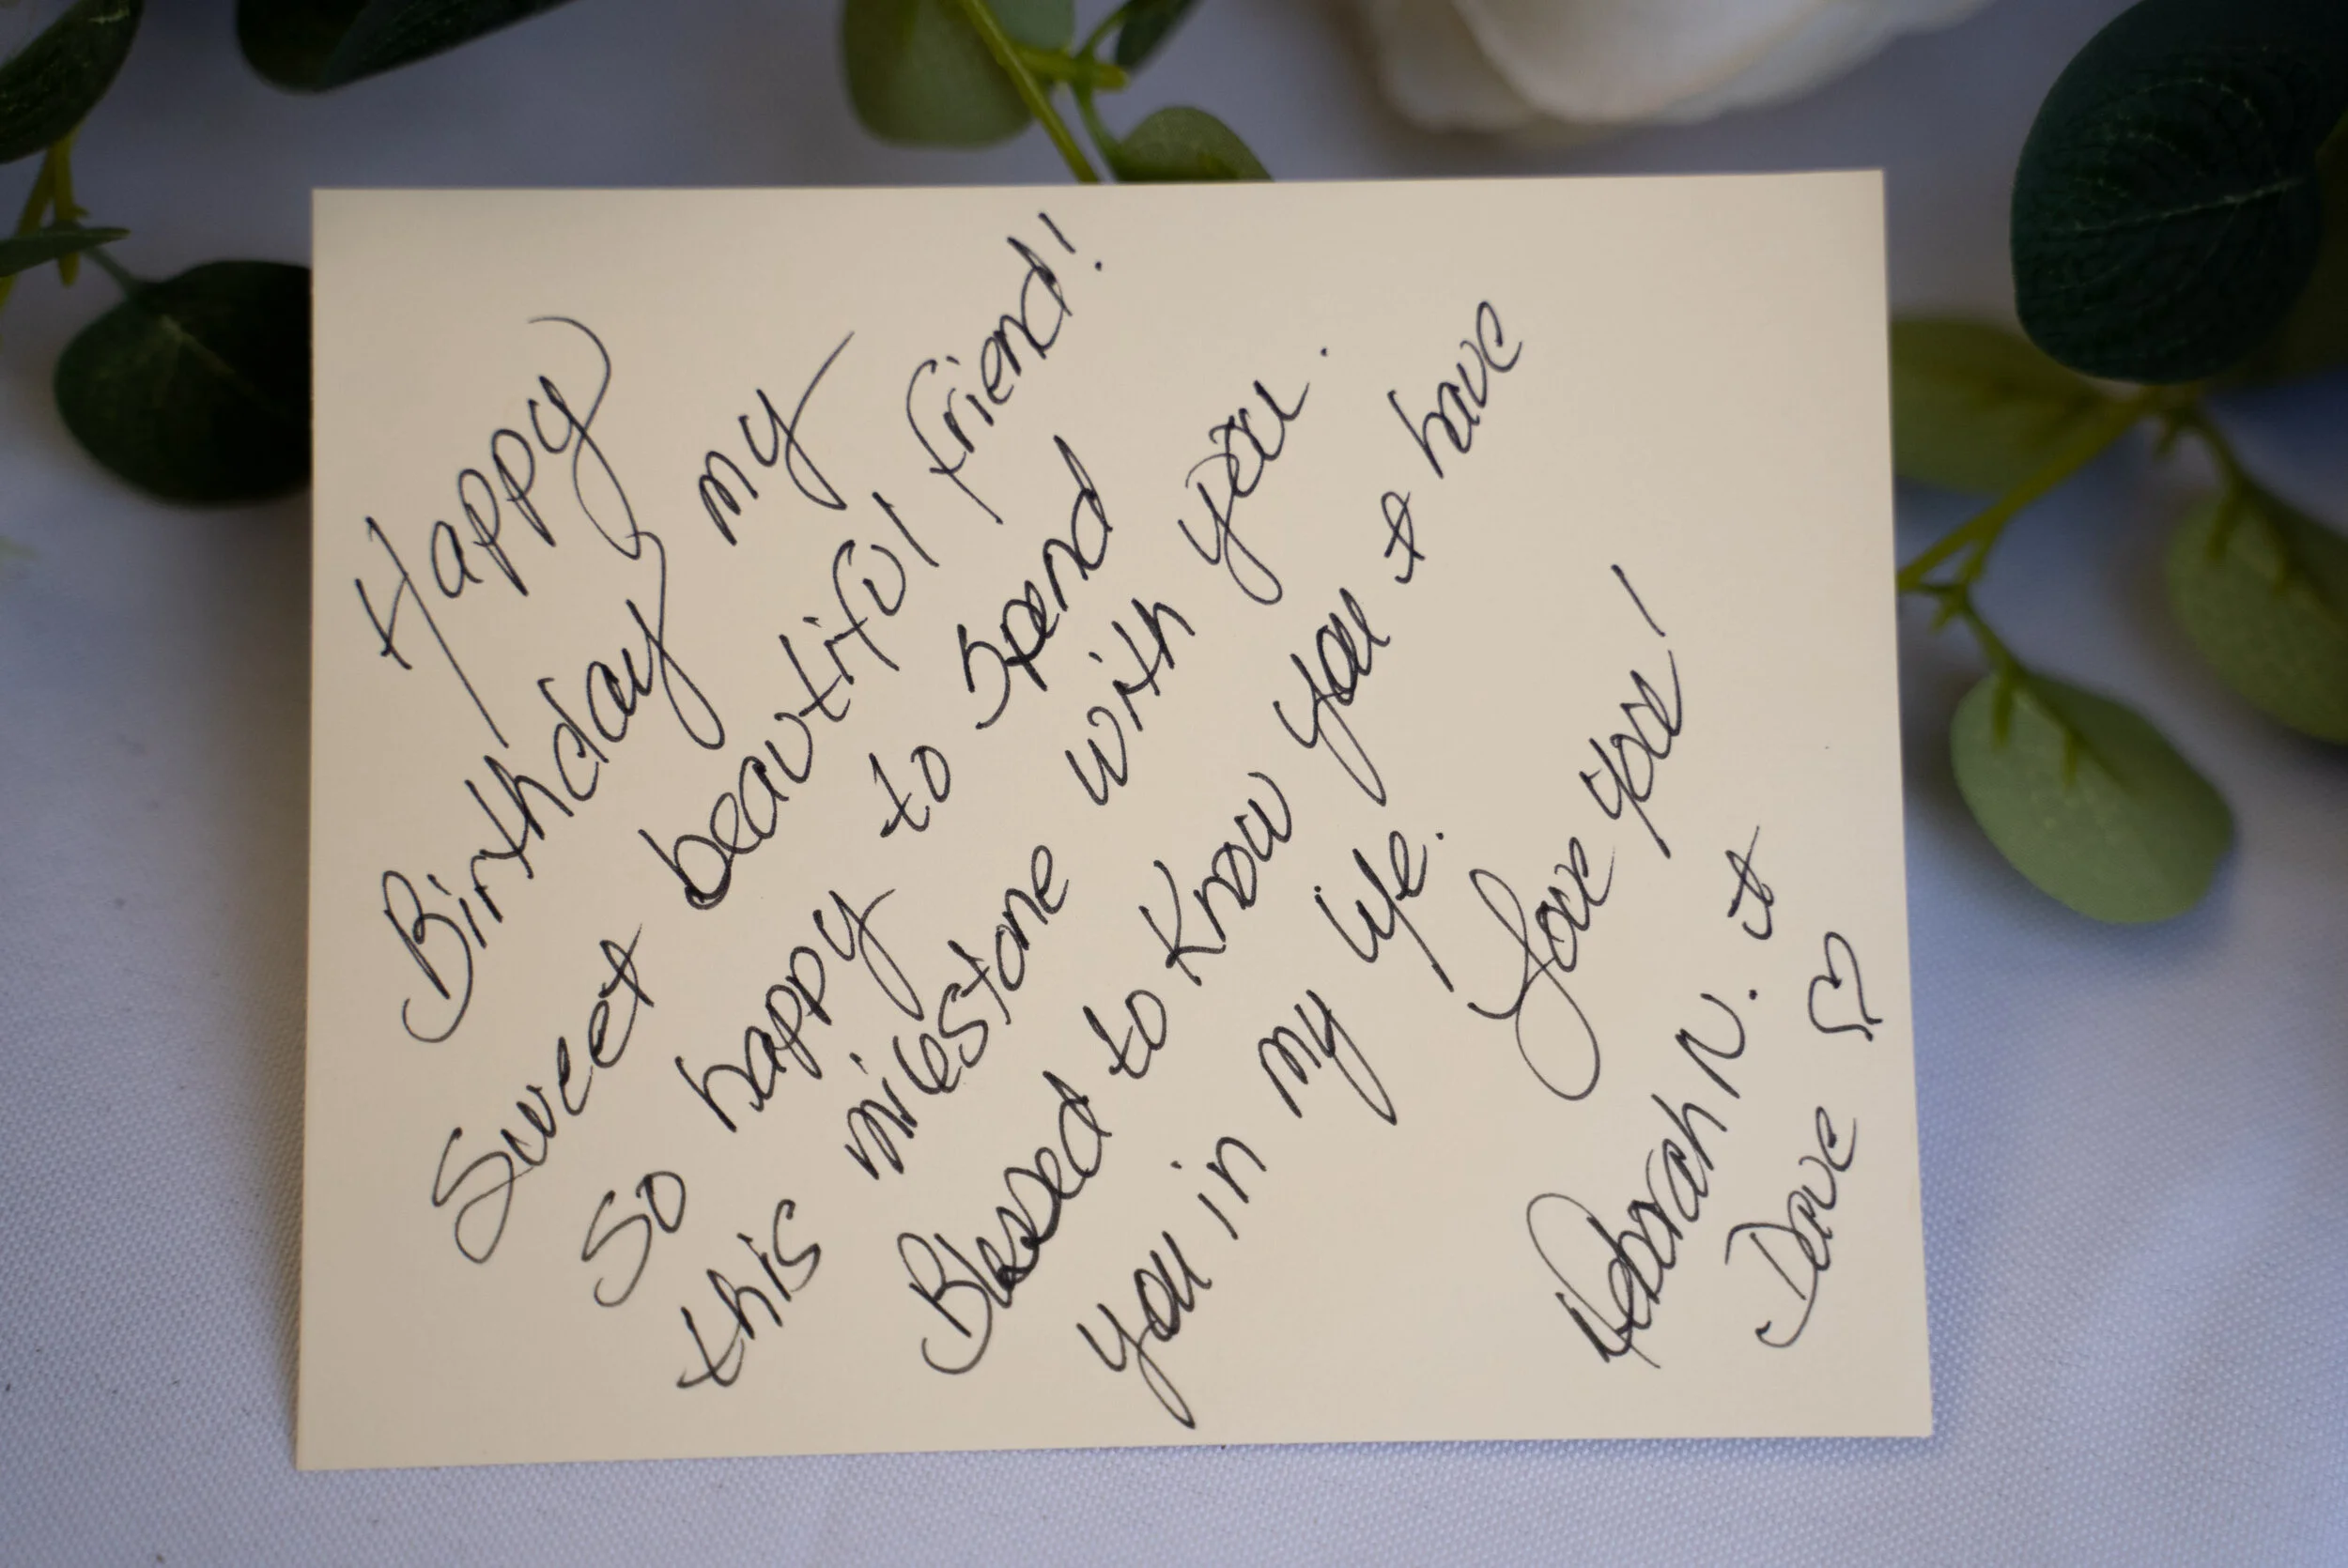 Happy
Birthday my
Sweet beautiful friend!
So happy to spend
this milestone with you.
Blessed to know you & have
you in my life.
Love you!
Deborah N. &
Dave ♡